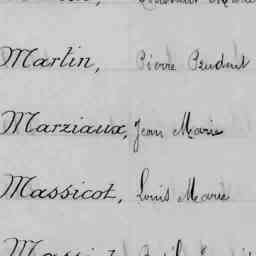 Martin, Pierre Prudent
Marziaux, Jean Marie
Massicot, Louis Marie